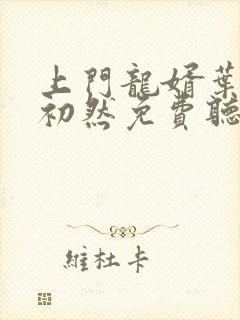 上門龍婿葉
初然免費聽
維杜卡